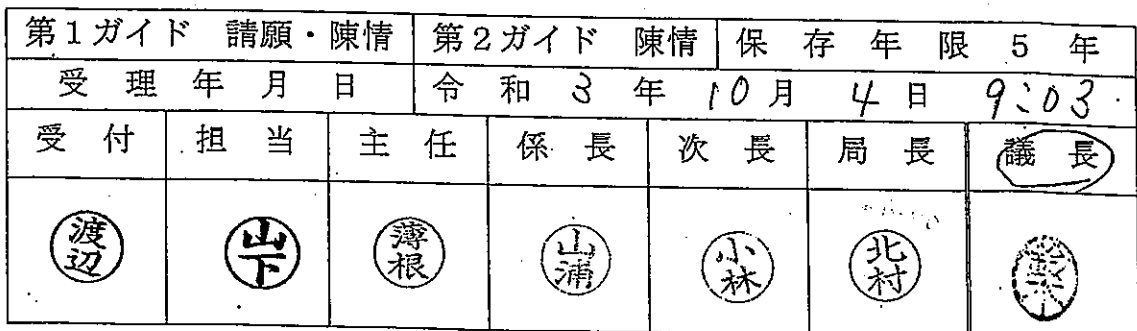 第1ガイド 請願・陳情 第2ガイド 陳情 保存年限 5年
受理年月日 令和3年10月4日 9:03
受付 担当 主任 係長 次長 局長 議長
渡辺 山下 薄根 山浦 小林 北村